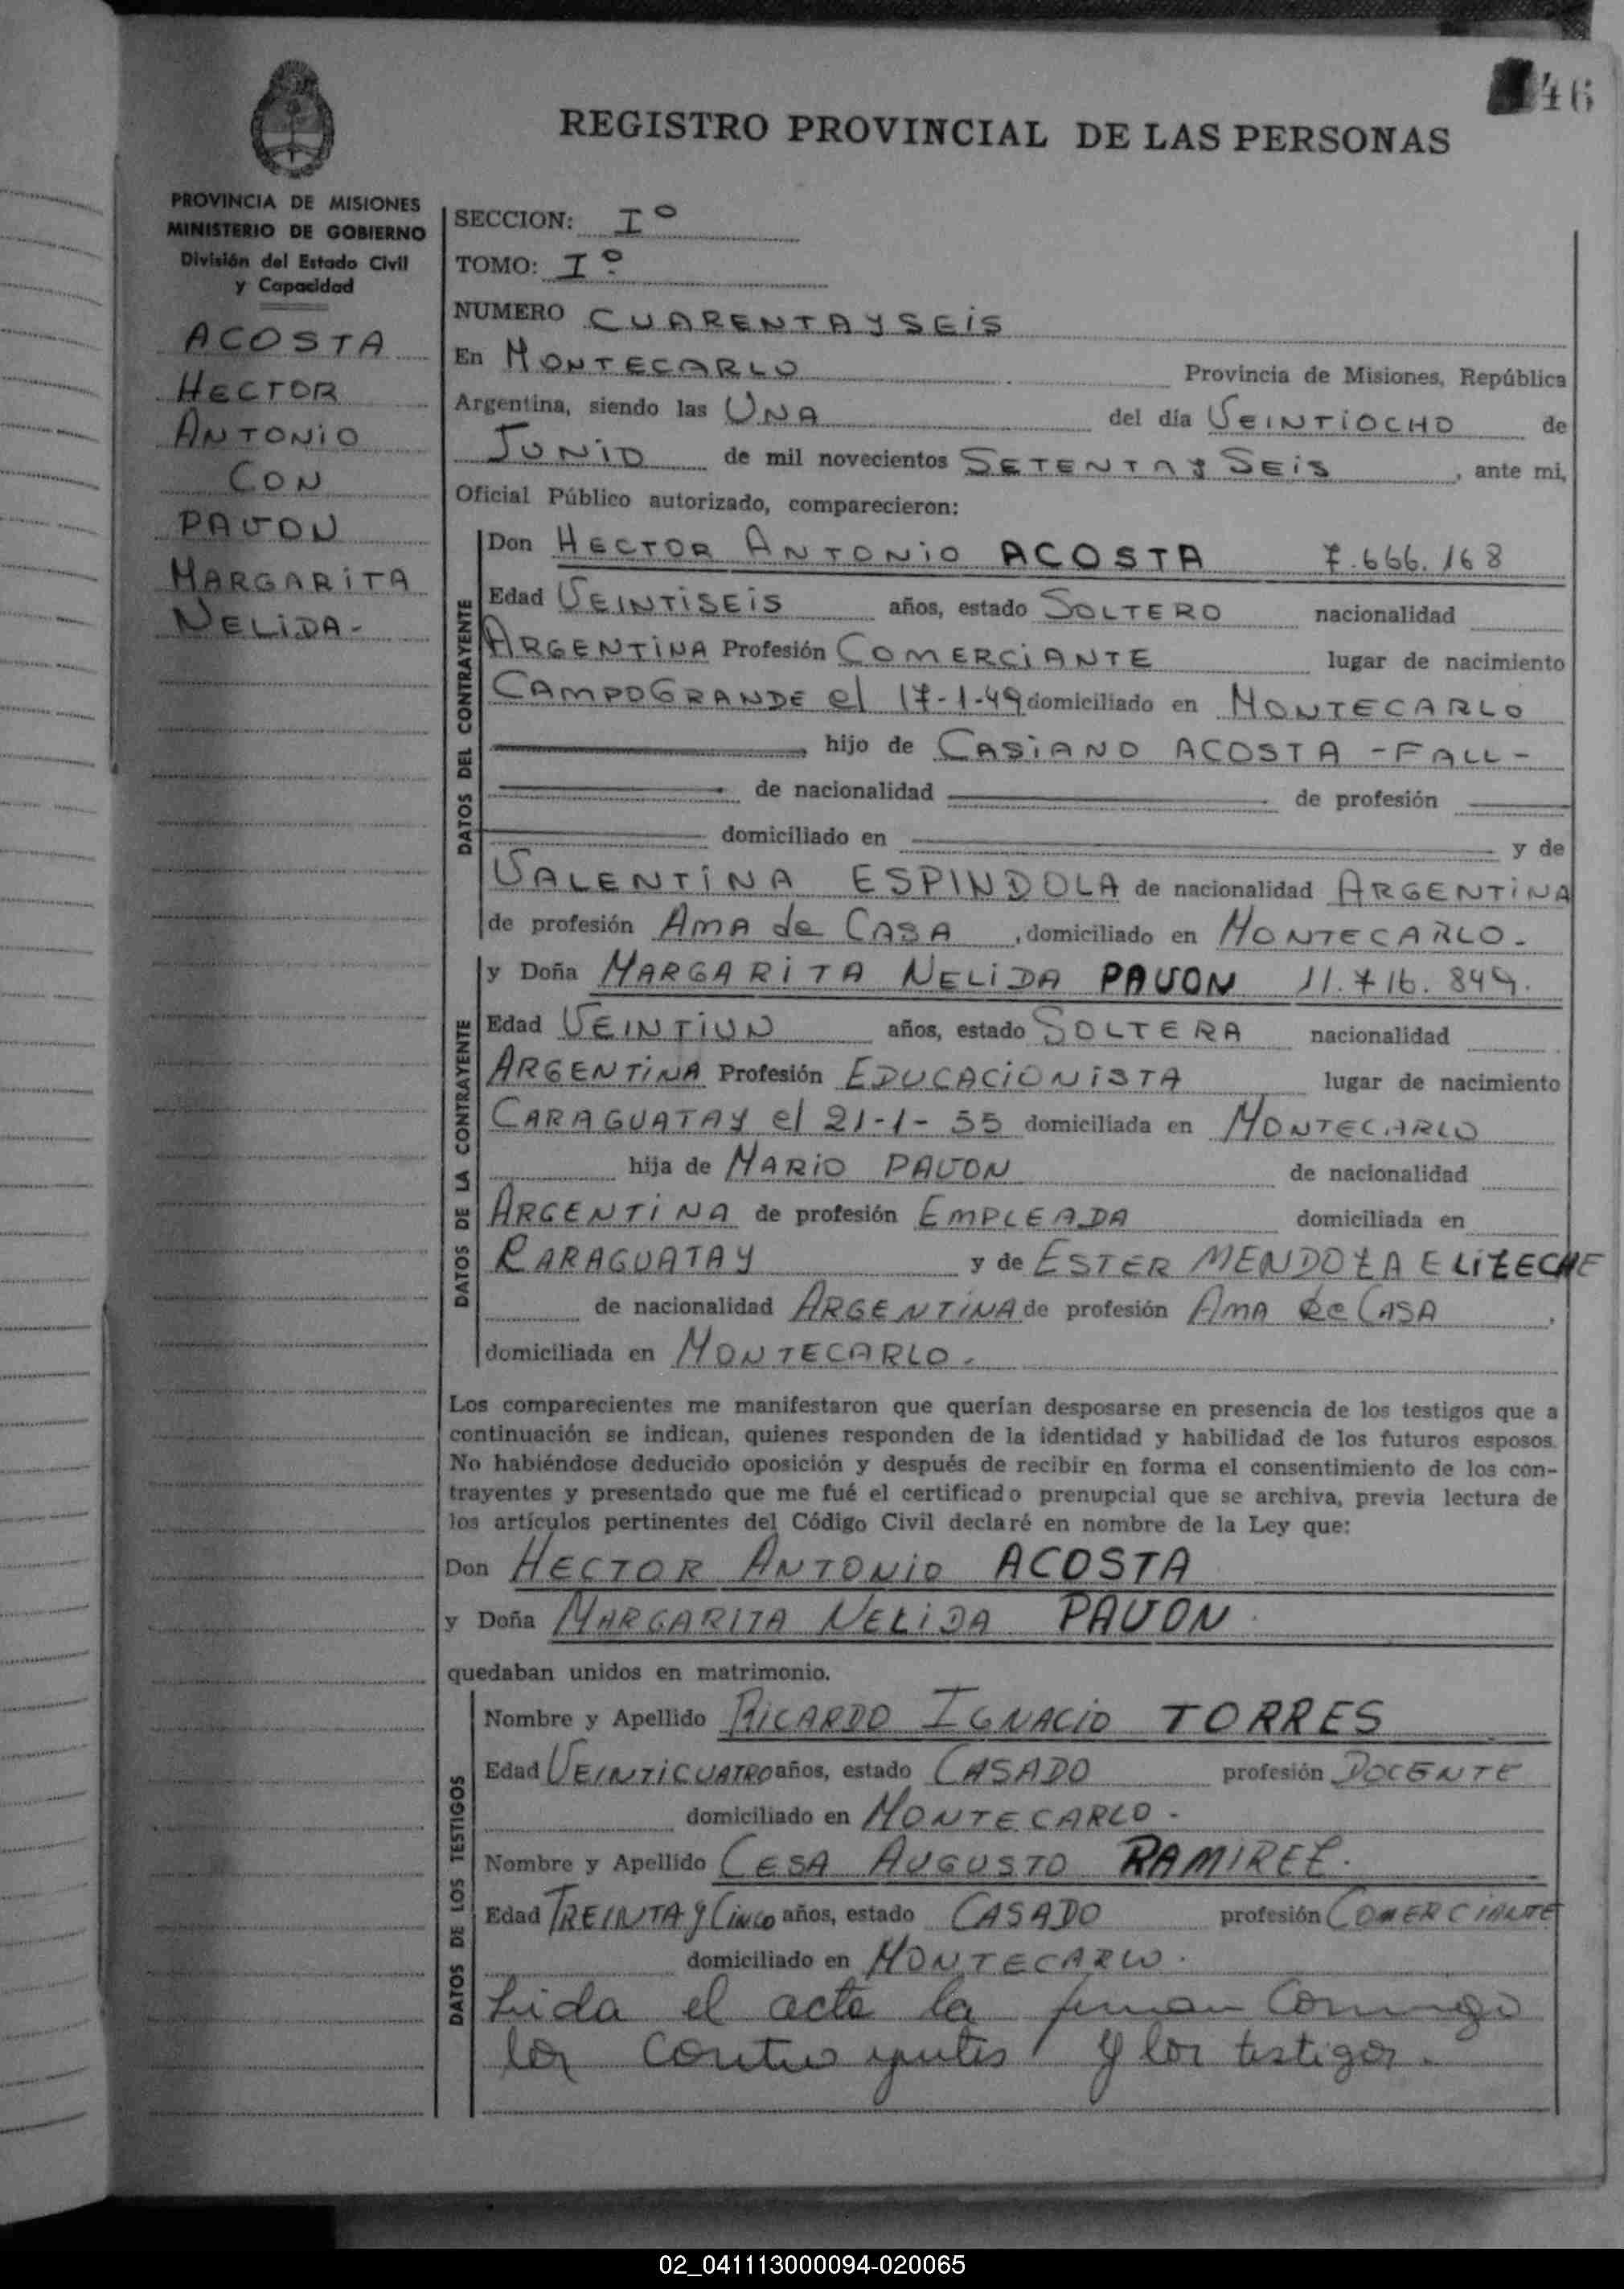 46
REGISTRO PROVINCIAL DE LAS PERSONAS
PROVINCIA DE MISIONES
MINISTERIO DE GOBIERNO
División del Estado Civil
y Capacidad
ACOSTA
HECTOR
ANTONIO
CON
PAVON
MARGARITA
NELIDA-
SECCION: Iº
TOMO: Iº
NUMERO CUARENTA Y SEIS
En MONTECARLO Provincia de Misiones, República
Argentina, siendo las UNA del día VEINTIOCHO de
JUNIO de mil novecientos SETENTA Y SEIS, ante mi,
Oficial Público autorizado, comparecieron:
DATOS DEL CONTRAYENTE
Don HECTOR ANTONIO ACOSTA 7.666.168
Edad VEINTISEIS años, estado SOLTERO nacionalidad
ARGENTINA Profesión COMERCIANTE lugar de nacimiento
CAMPO GRANDE el 17-1-49 domiciliado en MONTECARLO
hijo de CASIANO ACOSTA -FALL-
de nacionalidad de profesión
domiciliado en y de
VALENTINA ESPINDOLA de nacionalidad ARGENTINA
de profesión AMA de CASA, domiciliado en MONTECARLO.
DATOS DE LA CONTRAYENTE
y Doña MARGARITA NELIDA PAVON 11.716.849.
Edad VEINTIUN años, estado SOLTERA nacionalidad
ARGENTINA Profesión EDUCACIONISTA lugar de nacimiento
CARAGUATAY el 21-1-55 domiciliada en MONTECARLO
hija de MARIO PAVON de nacionalidad
ARGENTINA de profesión EMPLEADA domiciliada en
CARAGUATAY y de ESTER MENDOZA ELIZECHE
de nacionalidad ARGENTINA de profesión AMA de CASA,
domiciliada en MONTECARLO.
Los comparecientes me manifestaron que querían desposarse en presencia de los testigos que a
continuación se indican, quienes responden de la identidad y habilidad de los futuros esposos.
No habiéndose deducido oposición y después de recibir en forma el consentimiento de los con-
trayentes y presentado que me fué el certificado prenupcial que se archiva, previa lectura de
los artículos pertinentes del Código Civil declaré en nombre de la Ley que:
Don HECTOR ANTONIO ACOSTA
y Doña MARGARITA NELIDA PAVON
quedaban unidos en matrimonio.
DATOS DE LOS TESTIGOS
Nombre y Apellido RICARDO IGNACIO TORRES
Edad VEINTICUATRO años, estado CASADO profesión DOCENTE
domiciliado en MONTECARLO.
Nombre y Apellido CESA AUGUSTO RAMIREZ.
Edad TREINTA Y CINCO años, estado CASADO profesión COMERCIANTE
domiciliado en MONTECARLO.
Lida el acta la firman conmigo
los contrayentes y los testigos.
02_041113000094-020065